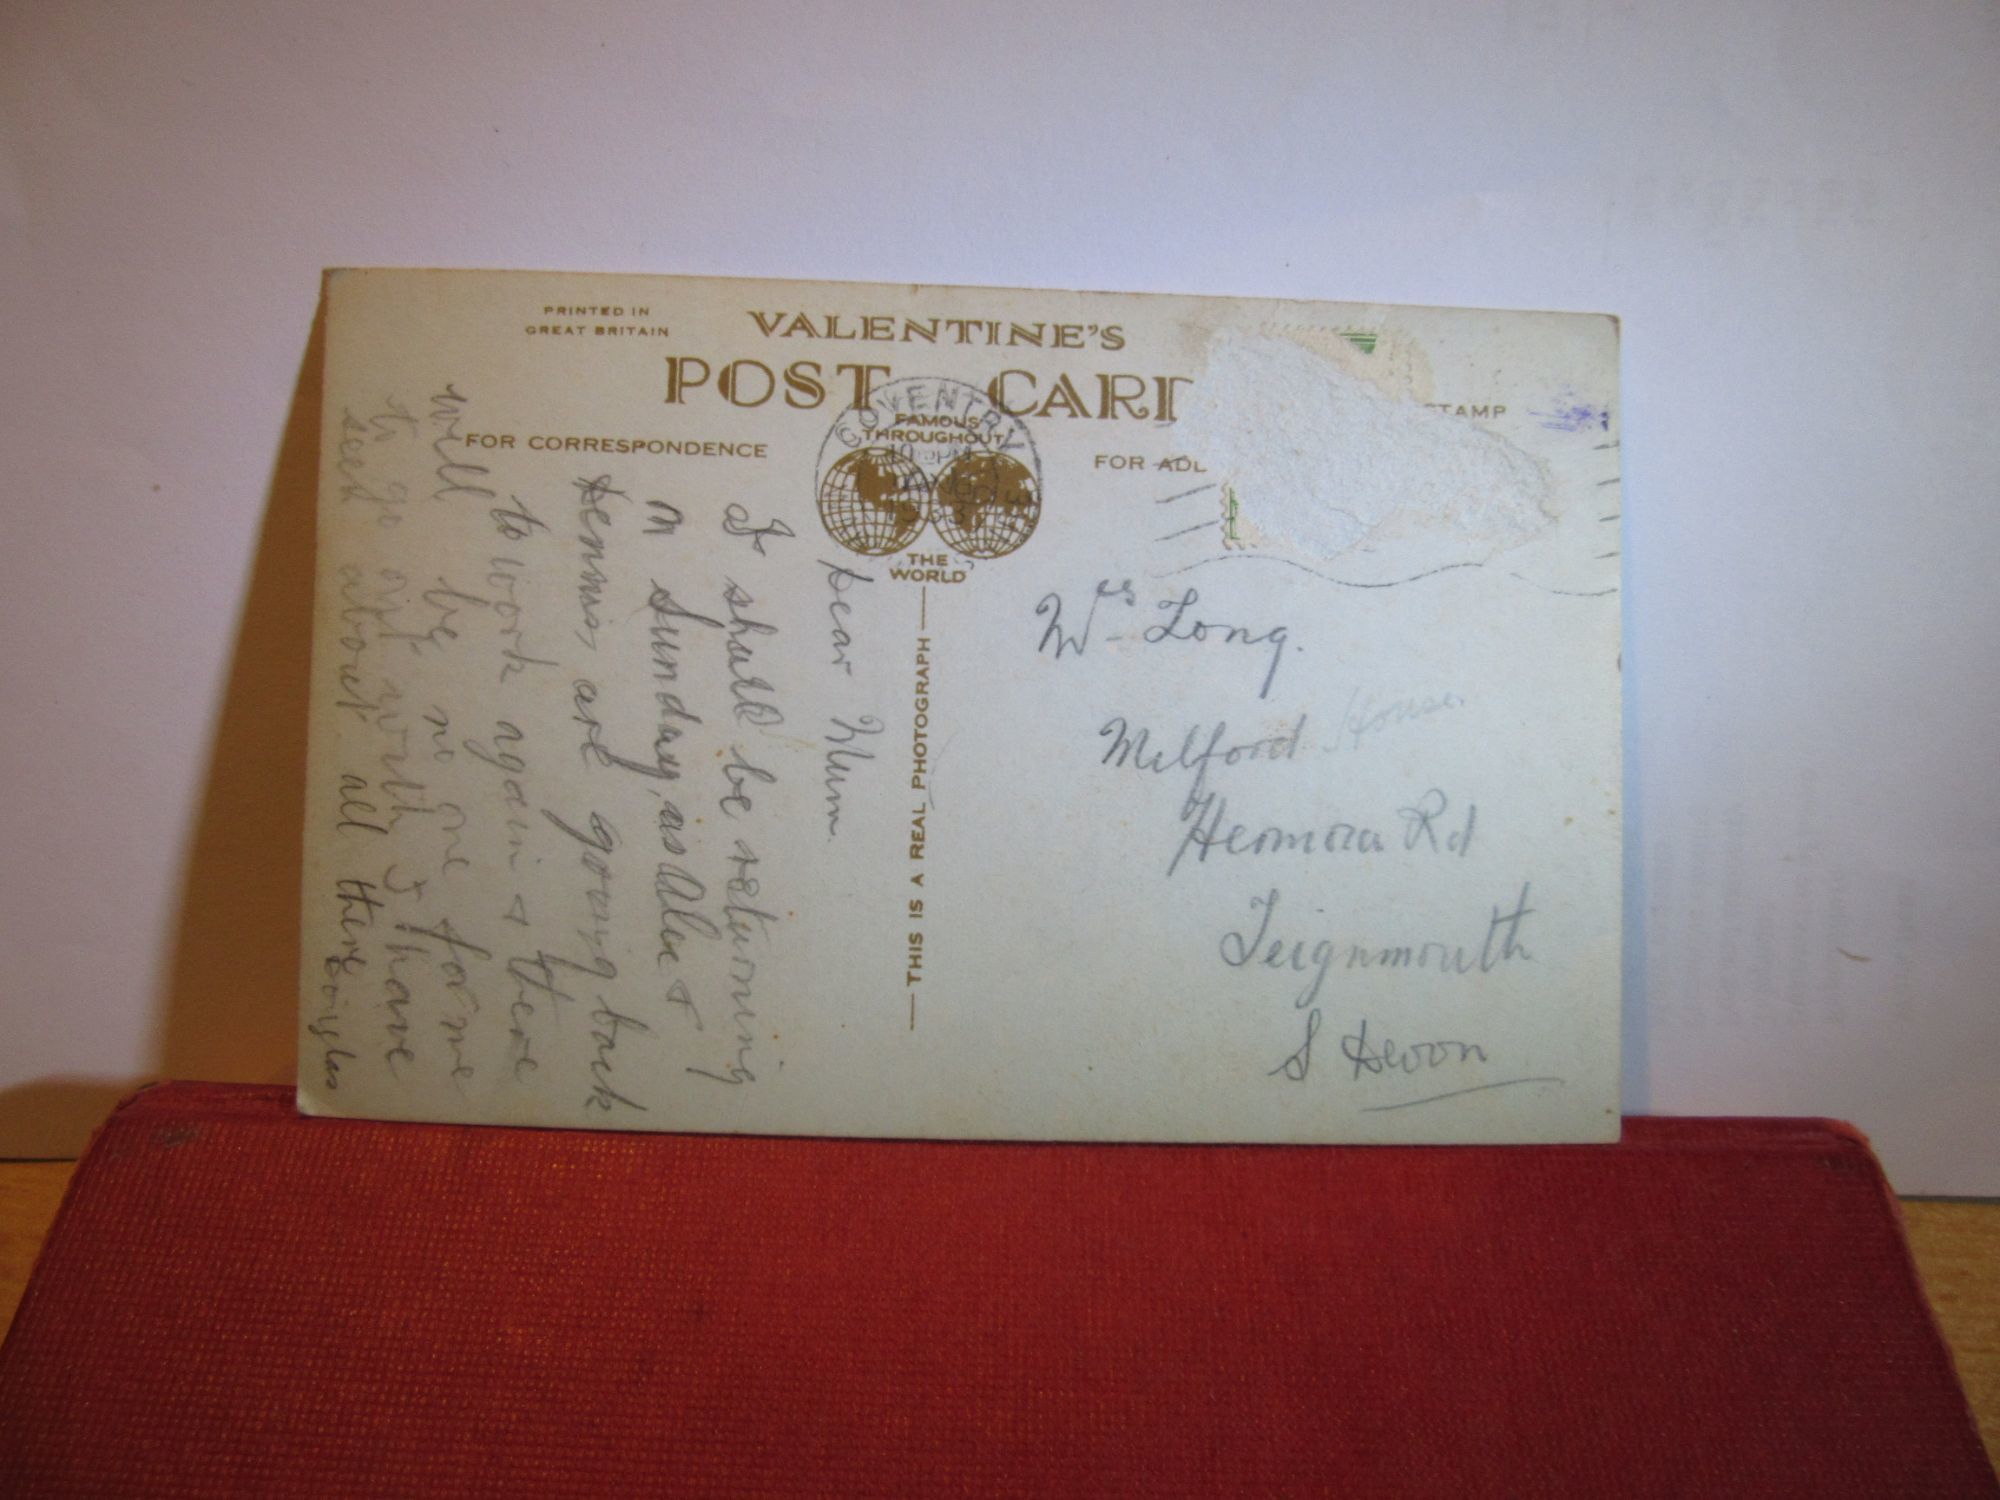 PRINTED IN
GREAT BRITAIN
VALENTINE'S
POST CARD
FOR CORRESPONDENCE
COVENTRY
FAMOUS
THROUGHOUT
THE
WORLD
STAMP
THIS IS A REAL PHOTOGRAPH
Dear Mum.
I shall be returning
on Sunday, as Alec &
Dennis, are going back
to work again & there
will be no one for me
to go out with I have
seen about all there
Douglas
Mrs Long.
Milford House.
Rd
Teignmouth
S Devon